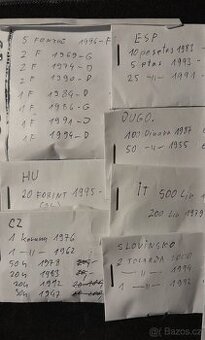 5 FENNIG 1976-F
2 F 1969-G
2 F 1974-D
2 F 1990-D
1 F 1984-D
1 F 1986-G
1 F 1991-D
1 F 1994-D
ESP
10 pesetas 1983
5 Ptas 1993
25 -||- 1991
JUGO.
100 Dinara 1987
50 -||- 1955
HU
20 FORINT 1995
IT
500 Lir
200 Lir
CZ
1 koruna 1976
1 -||- 1962
50h 1978
20h 1983
20h 1972
SLOVINSKO
2 TOLARJA 2000
-||- 1994
1 -||- 1992
Bazoš.cz